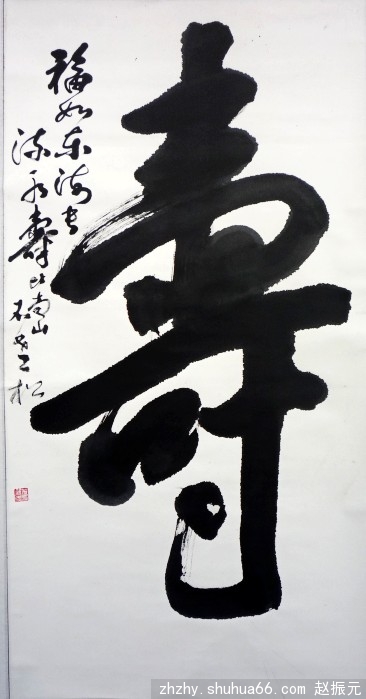 壽
福如东海长
流水壽比南山
不老松
zhzhy.shuhua66.com 赵振元